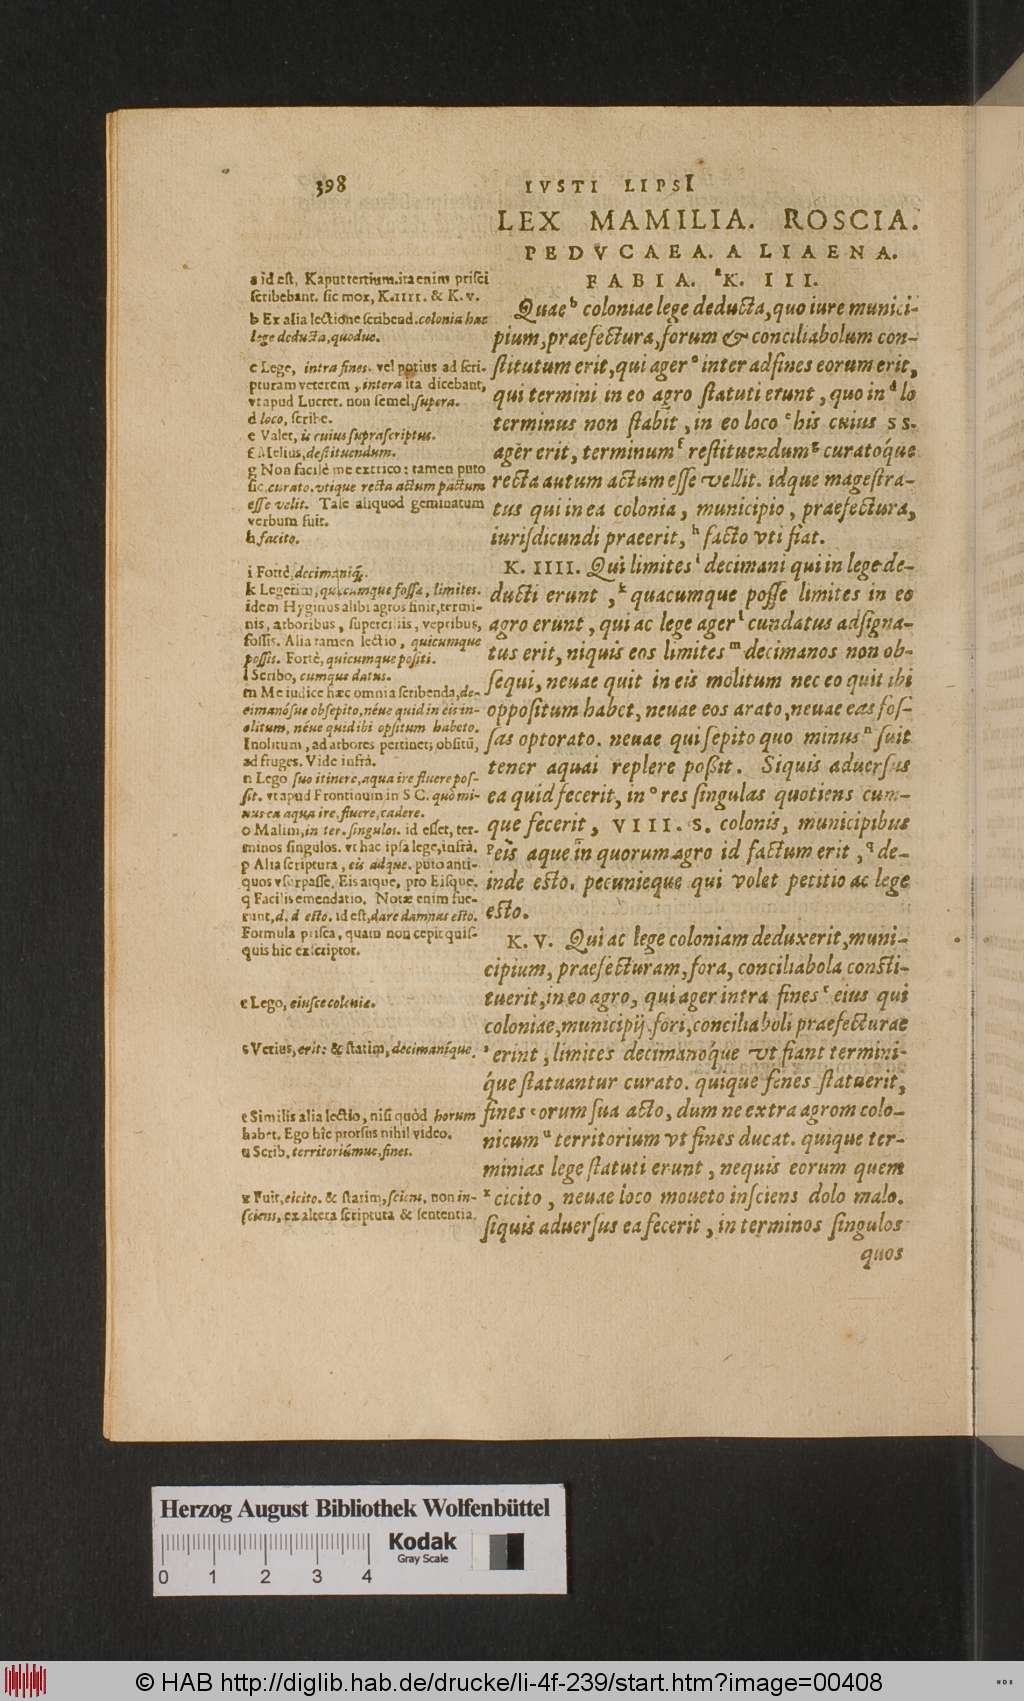 398
IVSTI LIPSI
LEX MAMILIA. ROSCIA.
PEDVCAEA. ALIAENA.
FABIA. ᵃK. III.
Quae ᵇ coloniae lege deducta, quo iure munici-
pium, praefectura, forum & conciliabolum con-
stitutum erit, qui ager ᶜ inter adfines eorum erit,
qui termini in eo agro statuti erunt, quo in ᵈ lo
terminus non stabit, in eo loco ᵉ his cuius SS.
ager erit, terminum ᶠ restituendum ᵍ curatóque
recta autum actum esse vellit. idque magestra-
tus qui in ea colonia, municipio, praefectura,
iurisdicundi praeerit, ʰ facto vti fiat.
K. IIII. Qui limites ⁱ decimani qui in lege de-
ducti erunt, ᵏ quacumque posse limites in eo
agro erunt, qui ac lege ager ˡ cundatus adsigna-
tus erit, niquis eos limites ᵐ decimanos non ob-
sequi, neuae quit in eis molitum nec eo quit ibi
oppositum habet, neuae eos arato, neuae eas fos-
sas optorato. neuae qui sepito quo minus ⁿ suit
tener aquai replere possit. Siquis aduersus
ea quid fecerit, in ᵒ res singulas quotiens cum-
que fecerit, VIII. S. colonis, municipibus
ᵖ eis aque in quorum agro id factum erit, ᑫ de-
inde esto. pecunieque qui volet petitio ac lege
esto.
K. V. Qui ac lege coloniam deduxerit, muni-
cipium, praefecturam, fora, conciliabola consti-
tuerit, in eo agro, qui ager intra fines ʳ eius qui
coloniae, municipij, fori, conciliaboli praefecturae
ˢ erint, limites decimanóque vt fiant termini-
q́ue statuantur curato. quique fenes statuerit,
fines ᵗ orum sua acto, dum ne extra agrom colo-
nicum ᵘ territorium vt fines ducat. quique ter-
minias lege statuti erunt, nequis eorum quem
ˣ cicito, neuae loco moueto insciens dolo malo.
siquis aduersus ea fecerit, in terminos singulos
quos
a id est, Kaput tertium. ita enim prisci
scribebant. sic mox, K. IIII. & K. V.
b Ex alia lectione scribend. colonia hac
lege deducta, quodue.
c Lege, intra fines. vel potius ad scri-
pturam veterem, intera ita dicebant,
vt apud Lucret. non semel, supera.
d loco, scribe.
e Valet, is cuius suprascriptus.
f Melius, destituendum.
g Non facilè me extrico: tamen puto
sic, curato. vtique recta actum pactum
esse velit. Tale aliquod geminatum
verbum fuit.
h facito.
i Fortè, decimaniq́.
k Legerim, quicumque fossa, limites.
idem Hyginus alibi agros finit, termi-
nis, arboribus, superciliis, vepribus,
fossis. Alia tamen lectio, quicumque
possis. Fortè, quicumque positi.
l Scribo, cumque datus.
m Me iudice hæc omnia scribenda, de-
cimanósue obsepito, néue quid in eis in-
olitum, néue quid ibi opsitum habeto.
Inolitum, ad arbores pertinet; obsitū,
ad fruges. Vide infrà.
n Lego suo itinere, aqua ire fluere pos-
sit. vt apud Frontinum in S C. quò mi-
nus ea aqua ire, fluere, cadere.
o Malim, in ter. singulos. id esset, ter-
minos singulos. vt hac ipsa lege, infrà.
p Alia scriptura, eis adque. puto anti-
quos vsurpasse, Eis atque, pro Eisque.
q Facilis emendatio. Notæ enim fue-
runt, d. d esto. id est, dare damnas esto.
Formula prisca, quam non cepit quis-
quis hic exscriptor.
r Lego, eiusce coloniæ.
s Verius, erit: & statim, decimaníque.
t Similis alia lectio, nisi quòd horum
habet. Ego hîc prorsus nihil video.
u Scrib. territoriúmue, fines.
x Fuit, eicito. & statim, sciens. non in-
sciens, ex altera scriptura & sententia.
Herzog August Bibliothek Wolfenbüttel
Kodak
Gray Scale
0 1 2 3 4
© HAB http://diglib.hab.de/drucke/li-4f-239/start.htm?image=00408